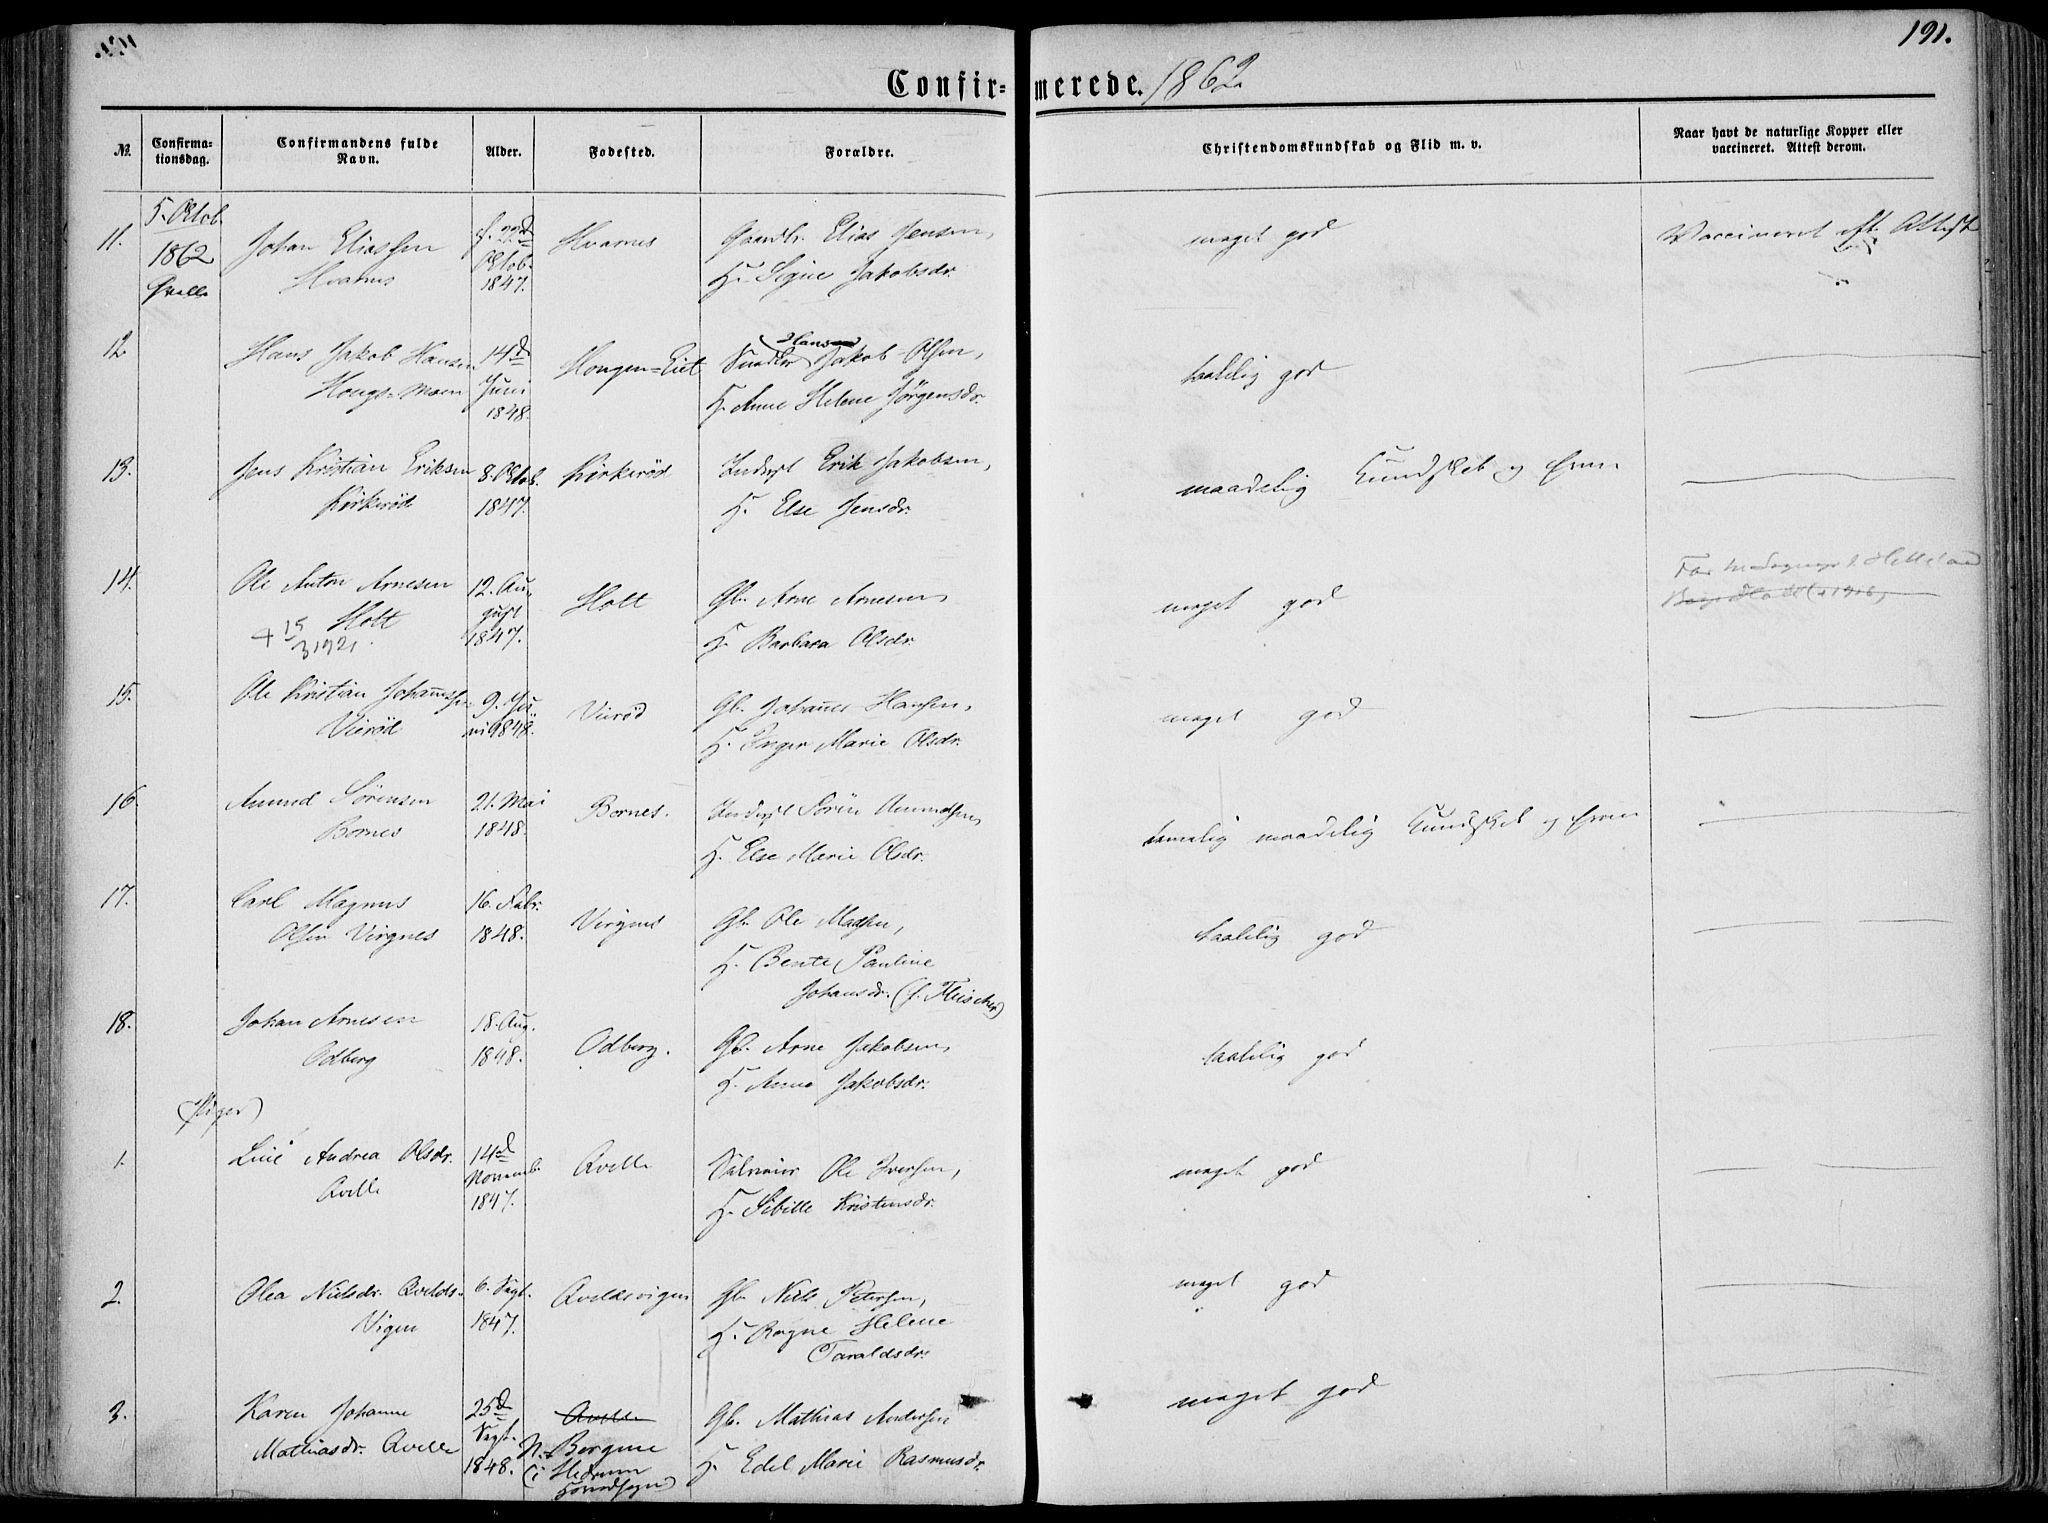 191.
Confir-merede. 1862
№
Confirma-
tionsdag.
Confirmandens fulde
Navn.
Alder.
Fødested.
Forældre.
Christendomskundskab og Flid m. v.
Naar havt de naturlige Kopper eller
vaccineret. Attest derom.
11.
5. Octob.
1862
Johan Eliassen
Hvarnes
f. 22d
Octob.
1847.
Hvarnes
Gaardbr. Elias Jensen,
H. Signe Jakobsdr.
meget god
Vaccineret eft. Attest
12
Hans Jakob Hansen
Hougs-Moen
14d
Juni
1848.
Hougen-Eiet
Hans
Jakob Olsen,
H. Anne Helene Jørgensdr.
taalelig god
13.
Jens Kristian Eriksen
Kirkerød
8. Octob.
1847.
Kirkerød
Inderst Erik Jakobsen,
H. Else Jensdr.
maadelig Kundskab og Evne
14.
Ole Anton Arnesen
Holt
+ 15/3 1921.
12. Au-
gust
1847.
Holt
Gb. Arne Arnesen,
H. Barbara Olsdr.
meget god
15.
Ole Kristian Johannesen
Vierød
9. Ju-
ni 1848.
Vierød
Gb. Johannes Hansen,
H. Inger Marie Olsdr.
meget god
16.
Amund Sørensen
Bornes
21. Mai
1848.
Bornes.
Inderst Sørin Amundsen,
H. Else Marie Olsdr.
temelig maadelig Kundskab og Evne
17.
Carl Magnus
Olsen Virgnes
16. Febr.
1848.
Virgnes
Gb. Ole Madsen,
H. Bente Pauline
Johansdr. (f. Fleischer)
taalelig god
18.
Johan Arnesen
Odberg
18. Aug.
1848.
Odberg.
Gb. Arne Jakobsen,
H. Anne Jakobsdr.
taalelig god
(Piger)
1.
Line Andrea Olsdr.
Qvelle
14d
Novemb.
1847.
Qvelle
Ole Iversen,
H. Sibille Kristensdr.
meget god
2.
Olea Nielsdr. Qvelds-
Vigen
6. Sept.
1847.
Qveldsvigen
Gb. Niels Petersen,
H. Ragne Helene
Taraldsdr.
meget god
3.
Karen Johanne
Mathiasdr. Qvelle
25d
Sept.
1848.
Qvelle
N. Bergene
(i Hedrum
Hovedsogn)
Gb. Mathias Andersen
H. Edel Marie Rasmusdr.
meget god